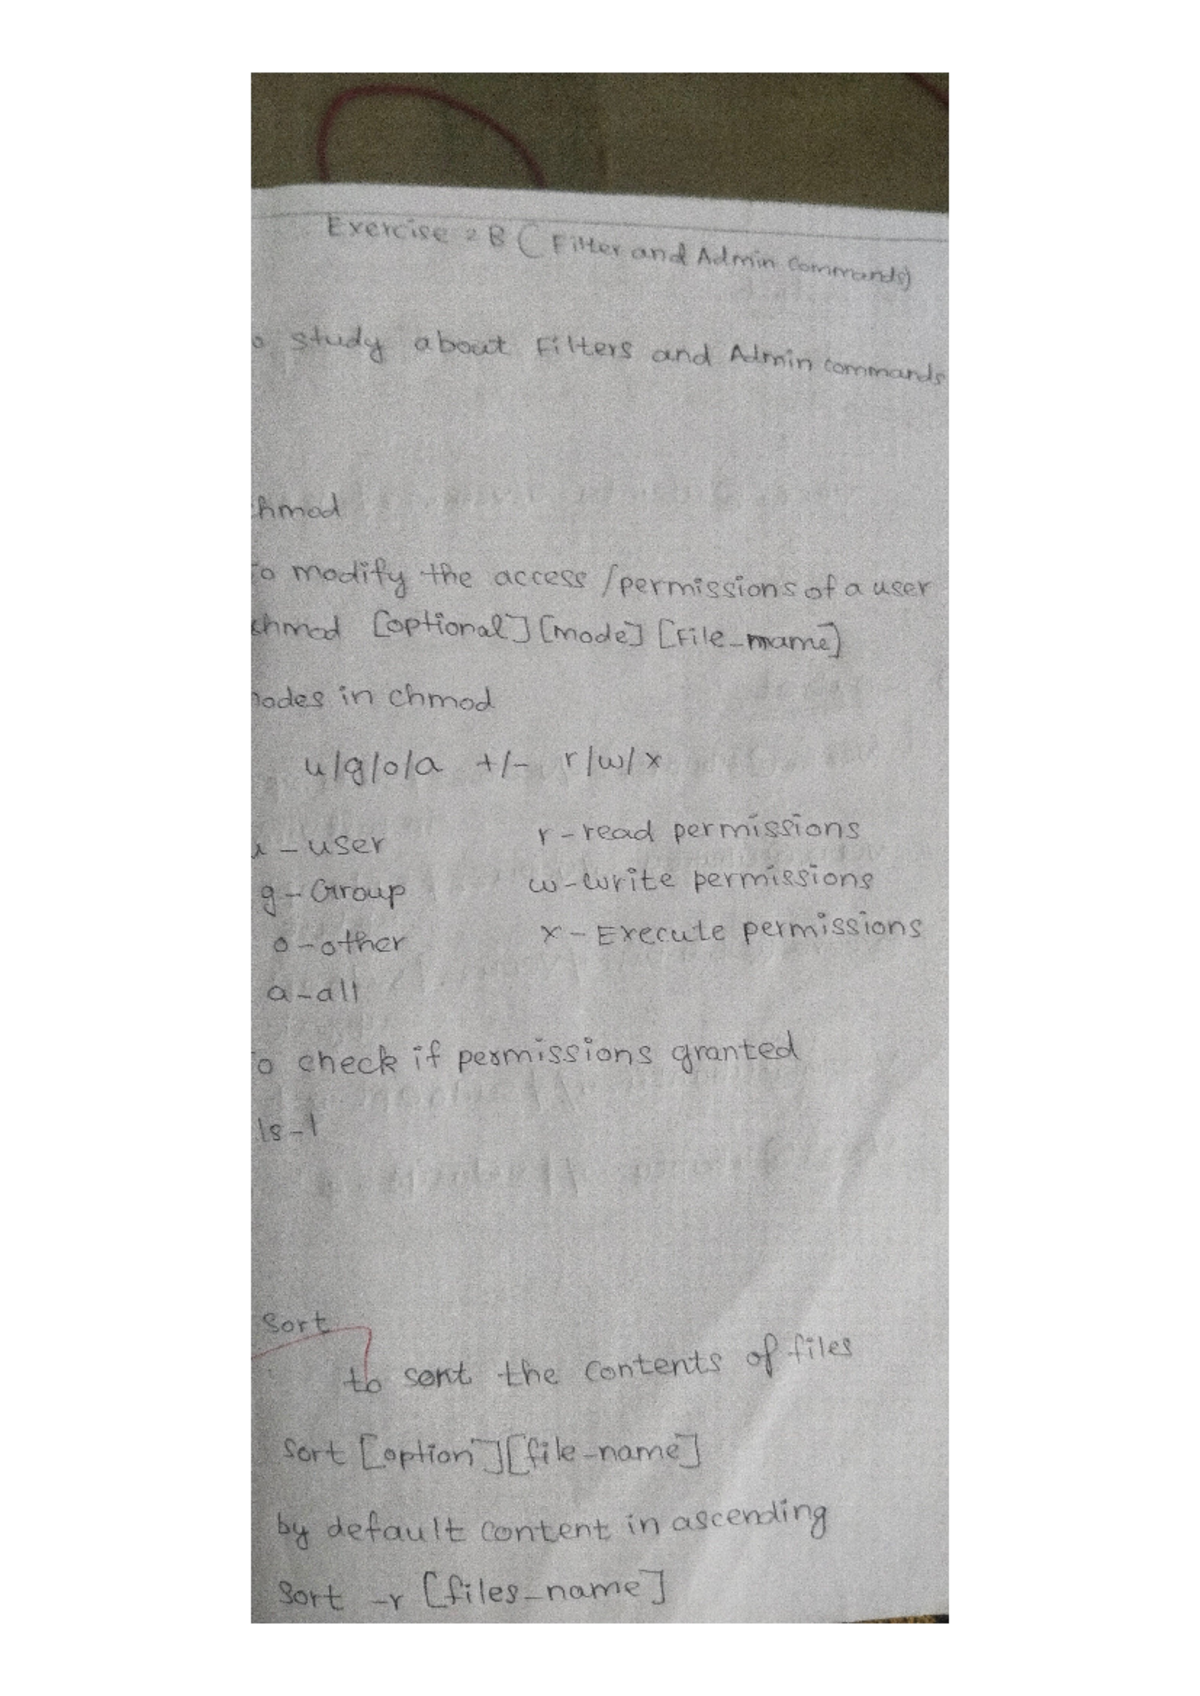 Exercise 2B (Filter and Admin commands)
o study about Filters and Admin commands
hmod
o modify the access /permissions of a user
chmod [optional] [mode] [File_name]
modes in chmod
u/g/o/a +/- r/w/x
u - user r - read permissions
g - Group w - write permissions
o - other x - Execute permissions
a - all
To check if permissions granted
ls-l
Sort
to sort the contents of files
Sort [option][file-name]
by default content in ascending
Sort -r [files_name]